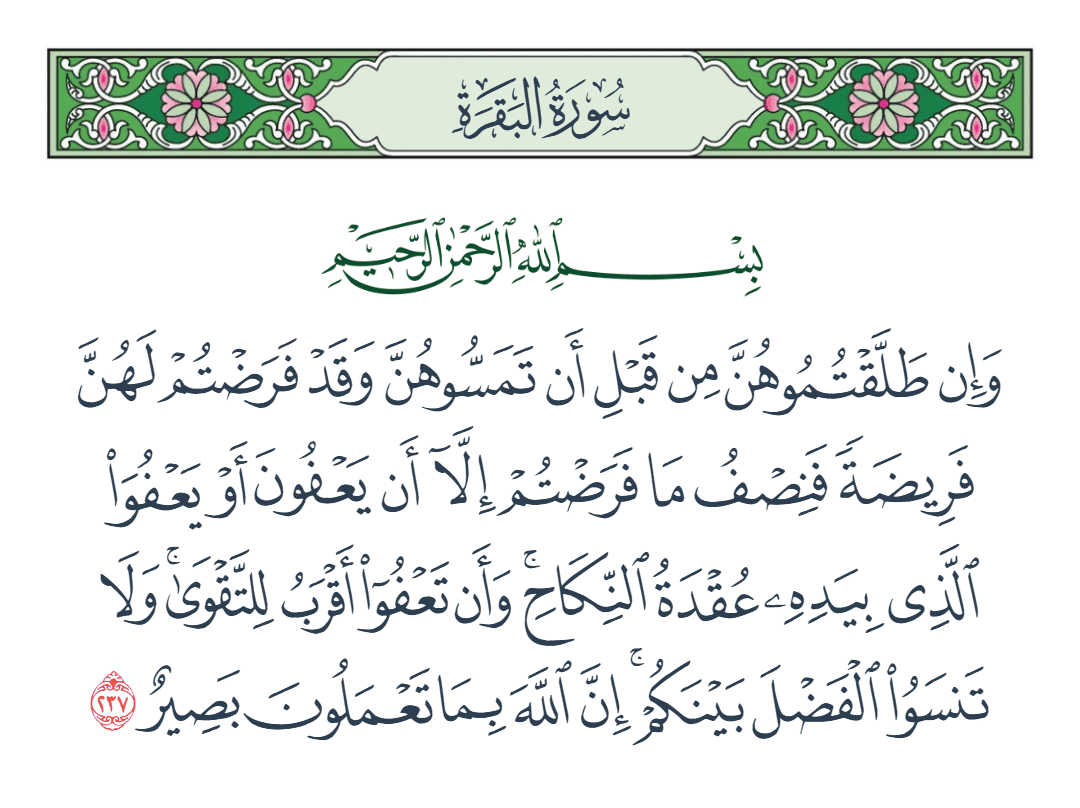 سُورَةُ البَقَرَةِ
بِسْمِ ٱللَّهِ ٱلرَّحْمَٰنِ ٱلرَّحِيمِ
وَإِن طَلَّقْتُمُوهُنَّ مِن قَبْلِ أَن تَمَسُّوهُنَّ وَقَدْ فَرَضْتُمْ لَهُنَّ
فَرِيضَةً فَنِصْفُ مَا فَرَضْتُمْ إِلَّآ أَن يَعْفُونَ أَوْ يَعْفُوَا۟
ٱلَّذِى بِيَدِهِۦ عُقْدَةُ ٱلنِّكَاحِ ۚ وَأَن تَعْفُوٓا۟ أَقْرَبُ لِلتَّقْوَىٰ ۚ وَلَا
تَنسَوُا۟ ٱلْفَضْلَ بَيْنَكُمْ ۚ إِنَّ ٱللَّهَ بِمَا تَعْمَلُونَ بَصِيرٌ ٢٣٧